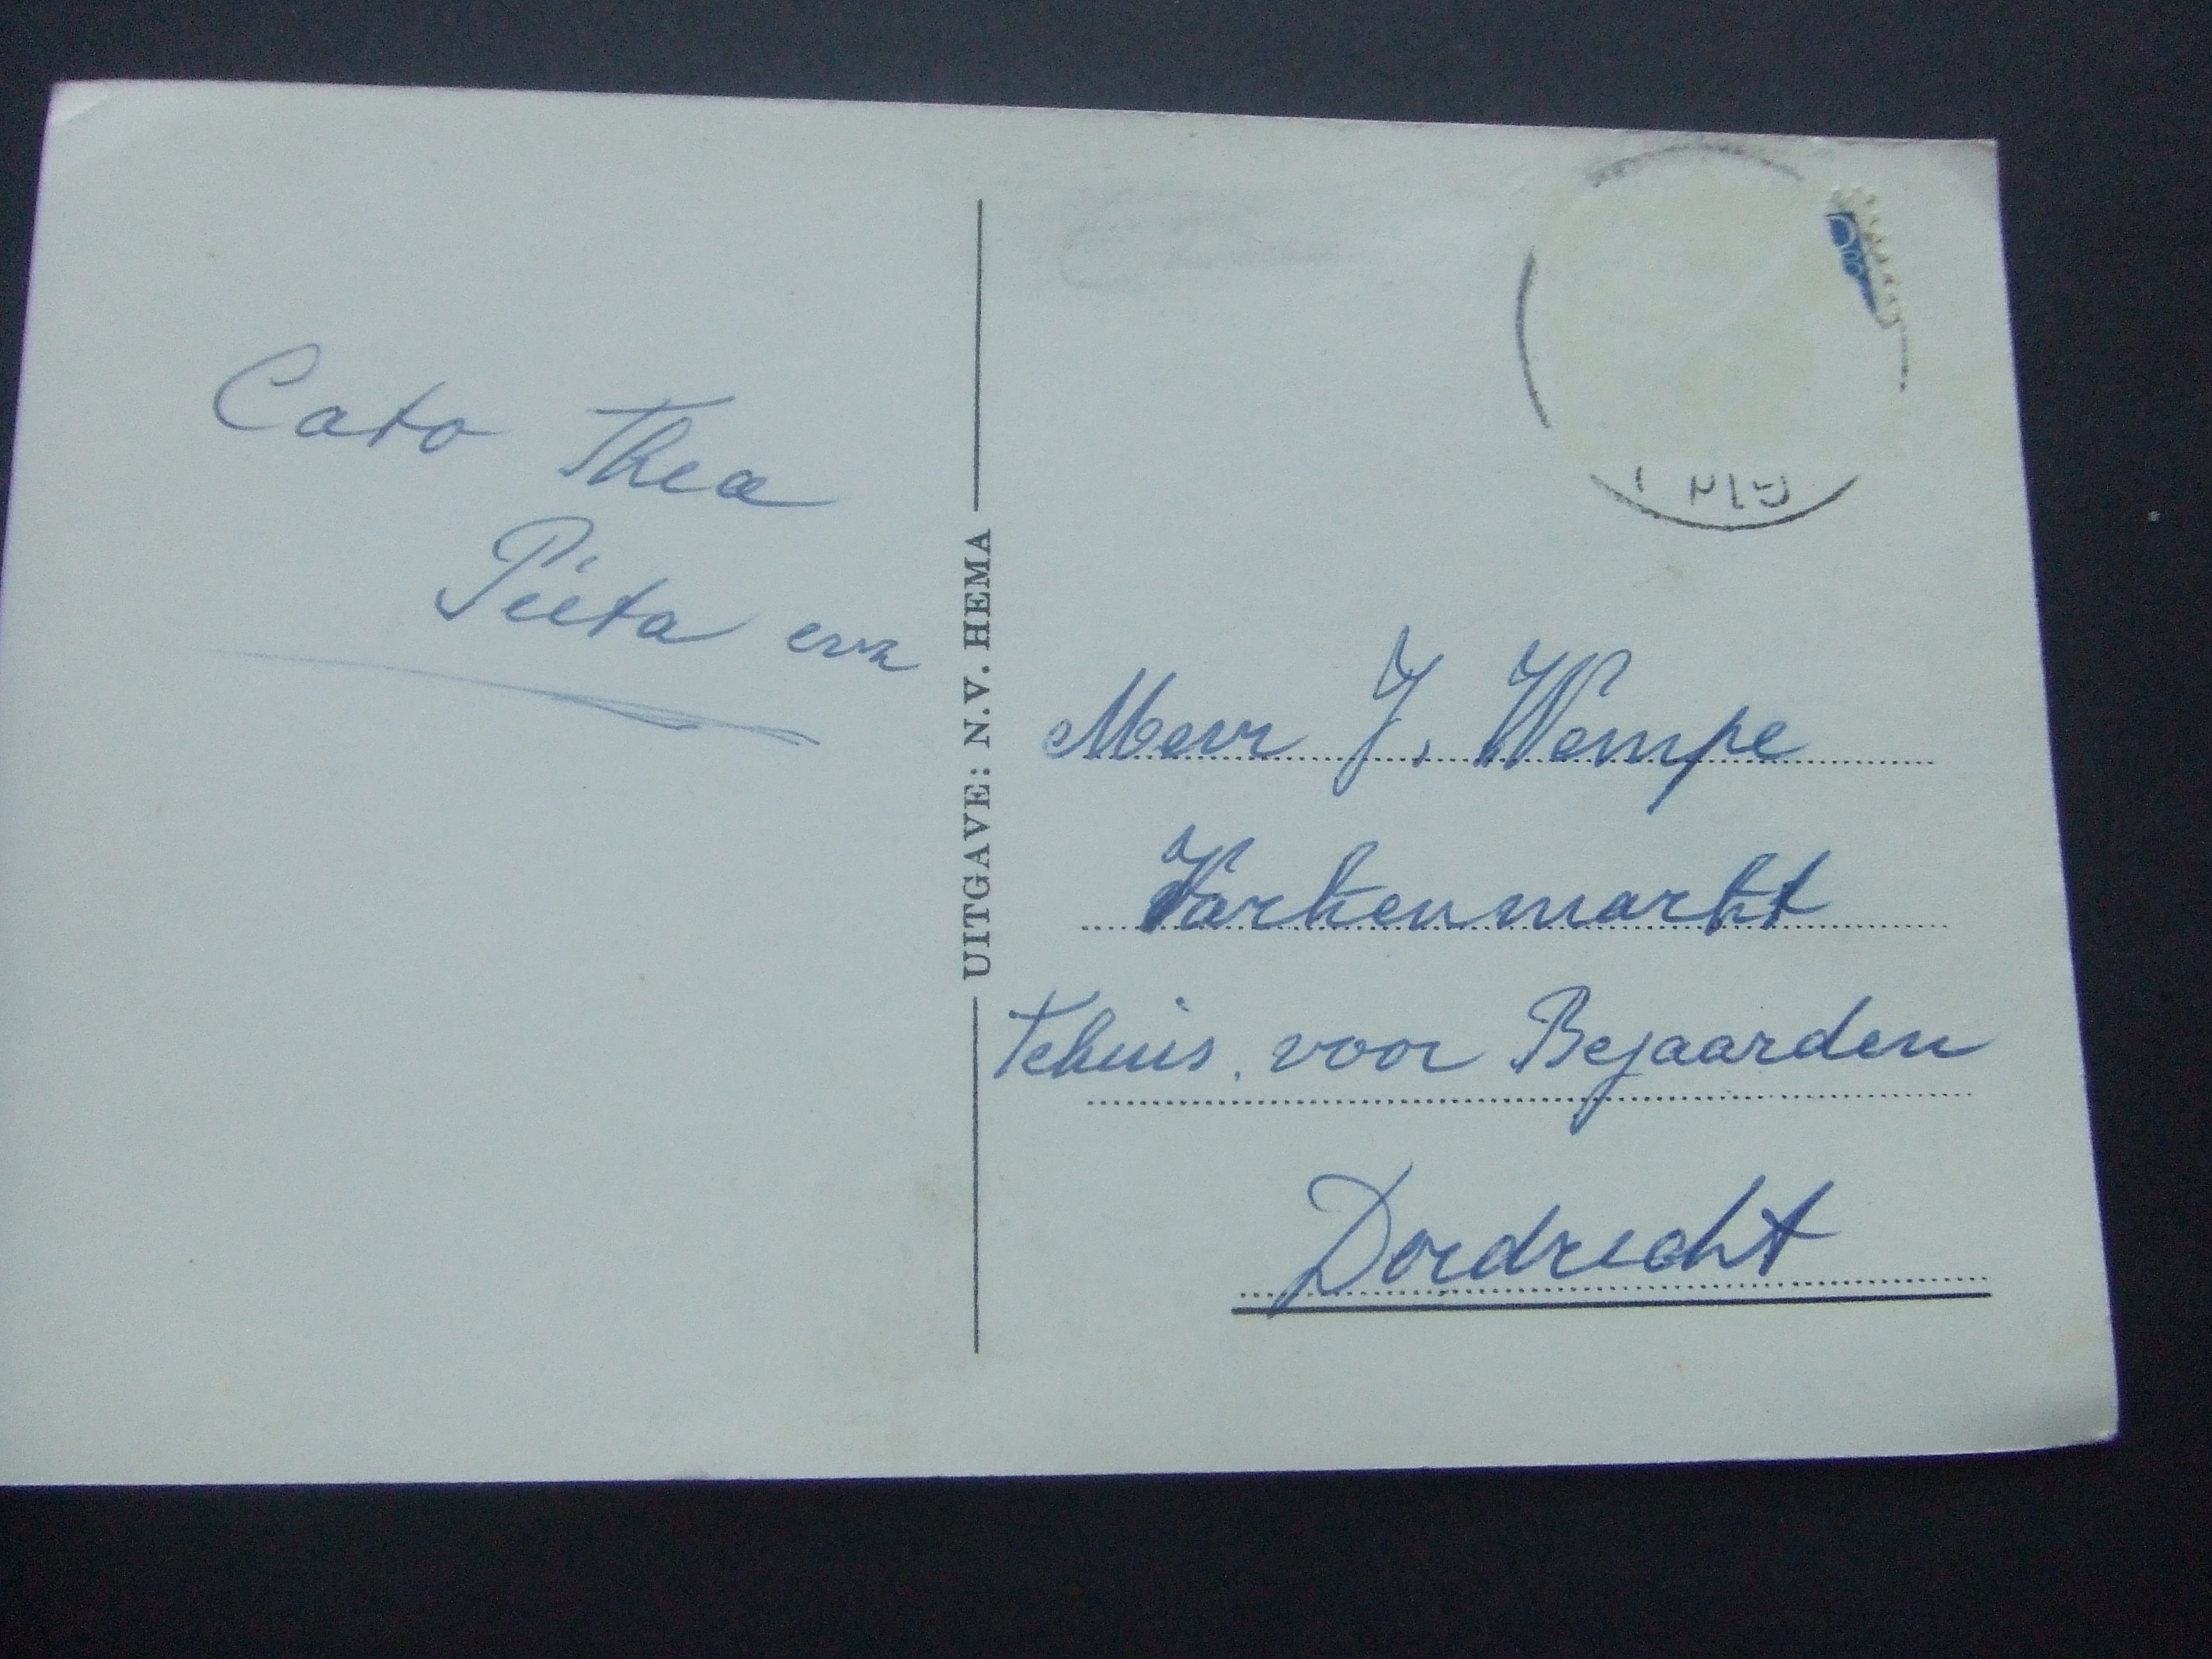 Cato Thea
Pieta enz
UITGAVE: N.V. HEMA
Mevr J. Wempe
Varkenmarkt
Tehuis voor Bejaarden
Dordrecht